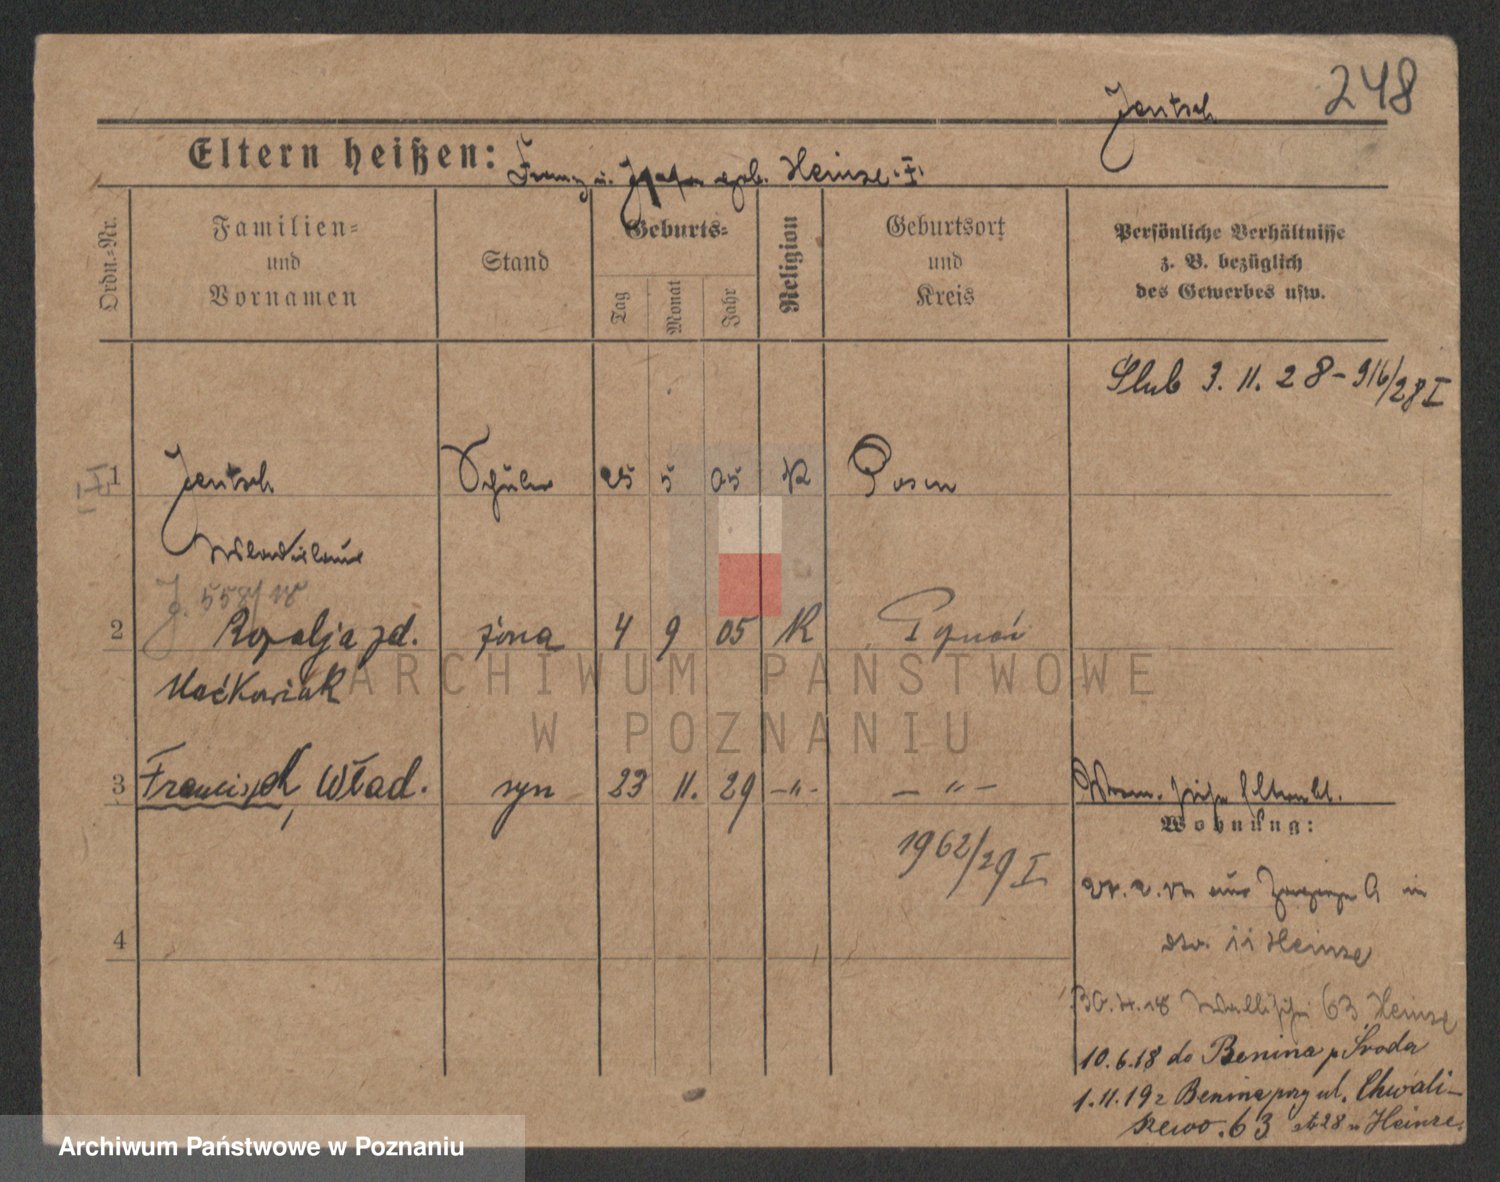 248
Jentsch
Eltern heißen: Franz u. Josefa geb. Heinze. I.
Ordn.-Nr.
Familien-
und
Vornamen
Stand
Geburts-
Tag
Monat
Jahr
Religion
Geburtsort
und
Kreis
Persönliche Verhältnisse
z. B. bezüglich
des Gewerbes usw.
Ślub 3. 11. 28 – 916/28 I
1 Jentsch Schüler 25 5 05 K Posen
Wladislaus
J. 558/18
2 Rozalja zd. żona 4 9 05 K Poznań
Maćkowiak
3 Francisch, Wład. syn 23 11. 29 –"– – " –
Wohnung:
1962/29 I
in
4
11 Heinze
30.4.18 Wallischei 63 Heinze
10.6.18 do Benina p Środa
1.11.19 z Benina przy ul. Chwali-
szewo. 63 u Heinze
ARCHIWUM PAŃSTWOWE
W POZNANIU
Archiwum Państwowe w Poznaniu